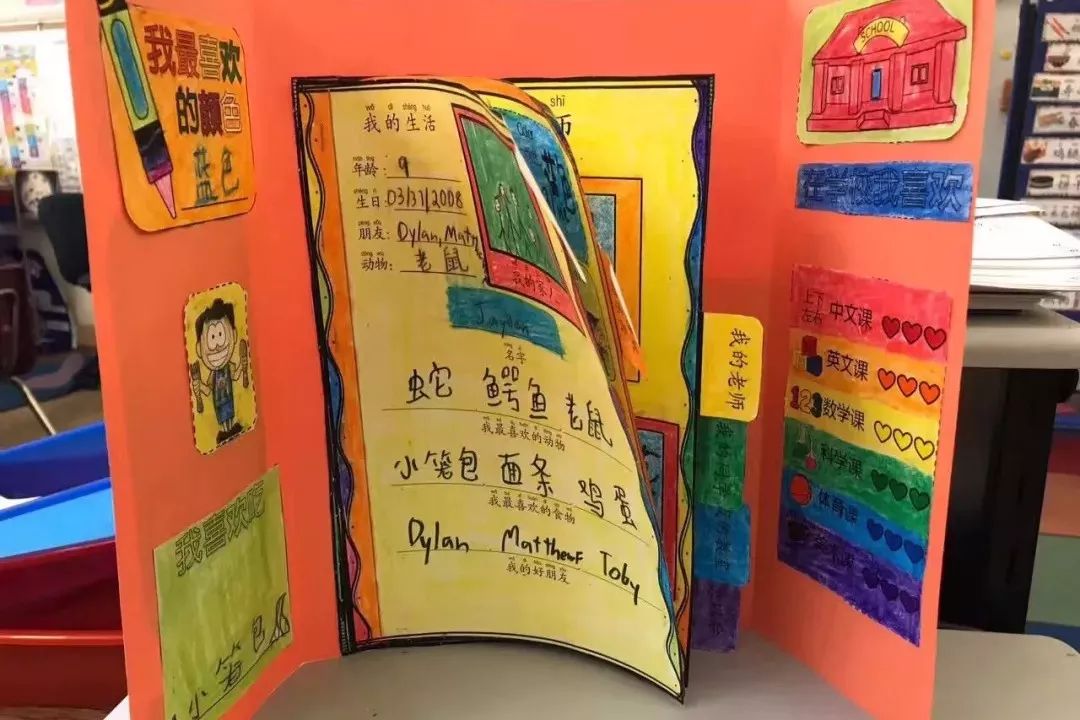 我最喜欢
的颜色
蓝色
我喜欢吃
小笼包
wǒ di shēng huó
我的生活
年龄: 9
生日: 03/31/2008
朋友: Dylan, Matt
动物: 老鼠
我的家人
Jayden
名字
蛇 鳄鱼 老鼠
我最喜欢的动物
小笼包 面条 鸡蛋
我最喜欢的食物
Dylan Matthew Toby
我的好朋友
shī
师
我的老师
SCHOOL
在学校我喜欢
上下
左右
中文课
英文课
123 数学课
科学课
体育课
鸡腿